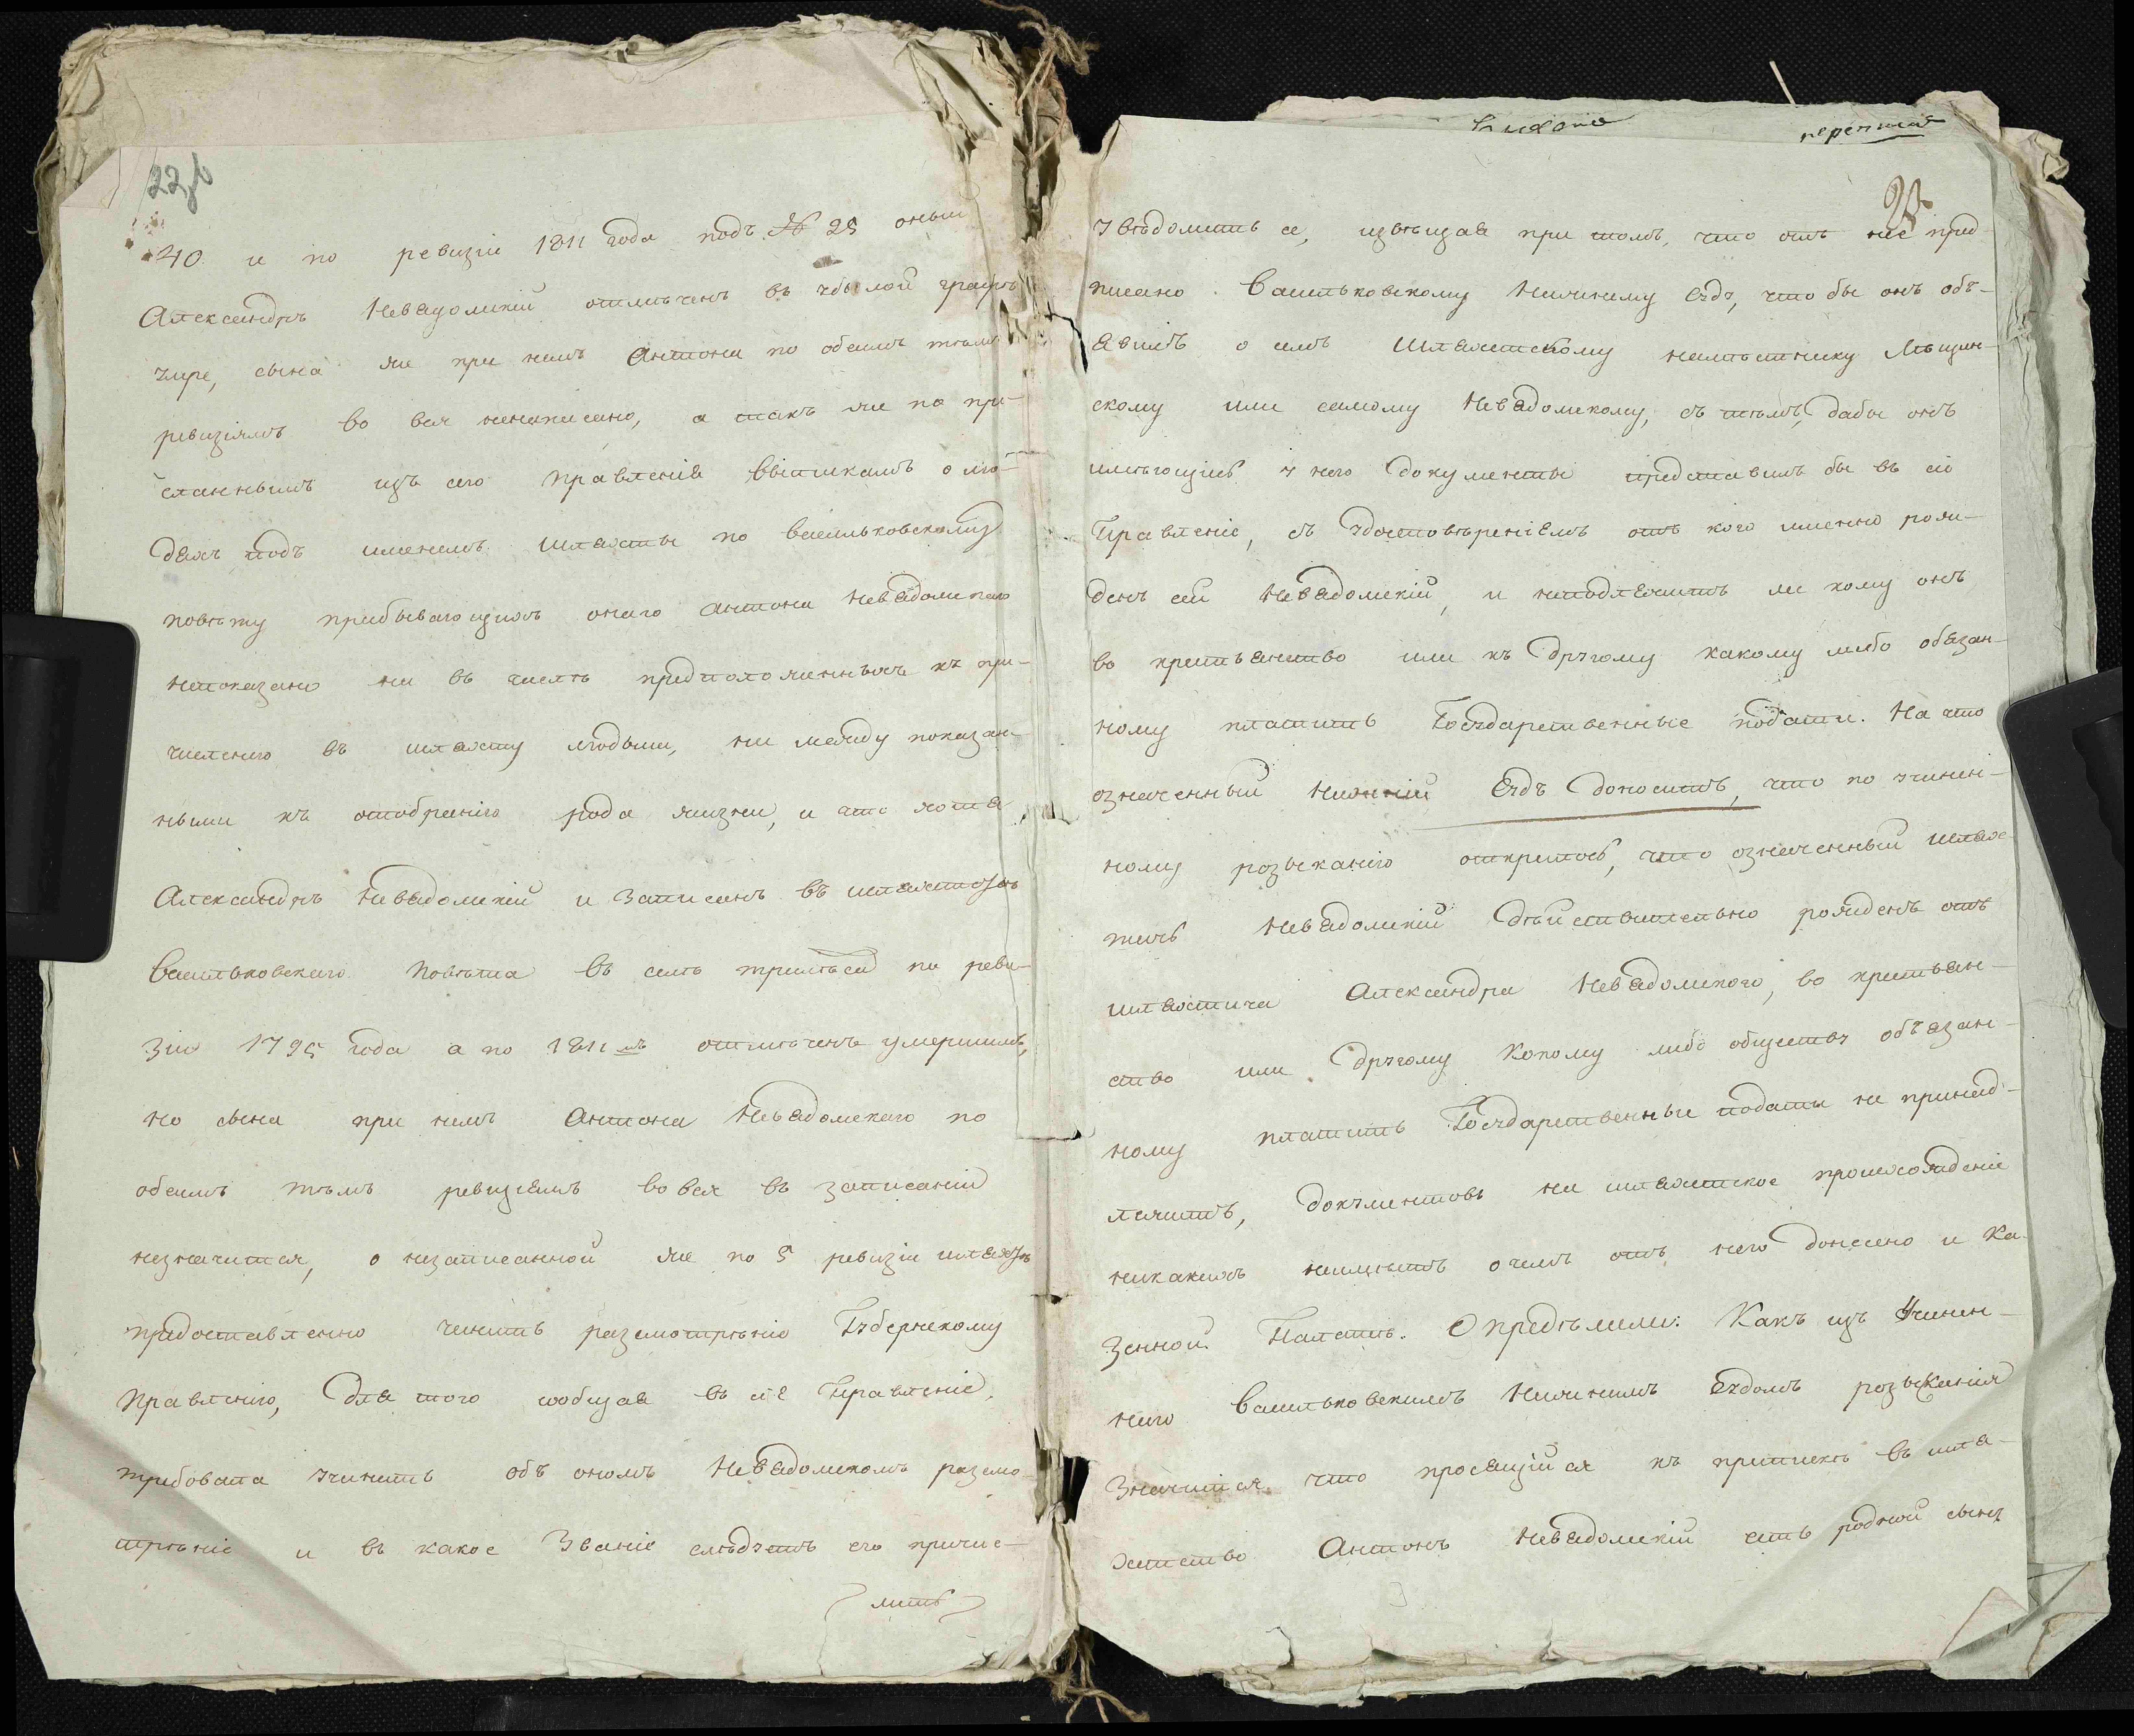 40 и по ревизіи 1811 года подъ № 25 оный
Александръ Невядомскій отмѣченъ въ убылой графѣ
умре, сына же при немъ Антона по обеимъ тѣмъ
ревизіямъ во вся ненаписано, а такъ же по при-
сланнымъ изъ сего Правленія выпискамъ о лю-
дяхъ подъ именемъ шляхты по Васильковскому
повѣту пребывающихъ онаго Антона Невядомскаго
непоказано ни въ числѣ предположенныхъ къ при-
численію въ шляхту людьми, ни между показан-
ными къ отобранію рода жизни, и что хотя
Александръ Невядомскій и записанъ въ шляхетствѣ
Васильковскаго Повѣта въ селѣ по реви-
зіи 1795 года а по 1811 мъ отмѣченъ умершимъ,
но сына при немъ Антона Невядомскаго по
обеимъ тѣмъ ревизіямъ вовся въ записаніи
незначится, о незаписанной же по 5 ревизіи шляхтѣ
предоставленно чинить разсмотрѣніе Губернскому
Правленію, для того сообщая въ сіе Правленіе,
требовала учинить объ ономъ Невядомскомъ разсмо-
трѣніе и въ какое Званіе слѣдуетъ его причис-
лить
22об
перечная
увѣдомить ее, извѣщая при томъ, что отъ нее пред-
писано Васильковскому Нижнему Суду, что бы онъ объ-
явилъ о семъ Шляхетскому намѣстнику
скому или самому Невядомскому, съ тѣмъ, дабы онъ
имѣющіесь у него документы представилъ бы въ сіе
Правленіе, съ удостовѣреніемъ отъ кого именно рож-
денъ сей Невядомскій, и неподлежитъ ли кому онъ
во крестьянство или къ другому какому либо обязан-
ному платить Государственные подати. На что
означенный Нижній Судъ доноситъ, что по учинен-
ному розысканію открылось, что означенный шлях-
тичъ Невядомскій дѣйствительно рожденъ отъ
шляхтича Александра Невядомскаго, во крестьян-
ство или другому кокому либо обществу объязан-
ному платить Государственные подати не принад-
лежитъ, документовъ на шляхетское происхожденіе
никакихъ неимѣетъ о чемъ отъ него донесено и Ка-
зенной Палатѣ. Опредѣлили: Какъ изъ Учинен-
наго Васильковскимъ Нижнимъ Судомъ розысканія
Значится что просящійся къ припискѣ въ шля-
хетство Антонъ Невядомскій есть родной сынъ